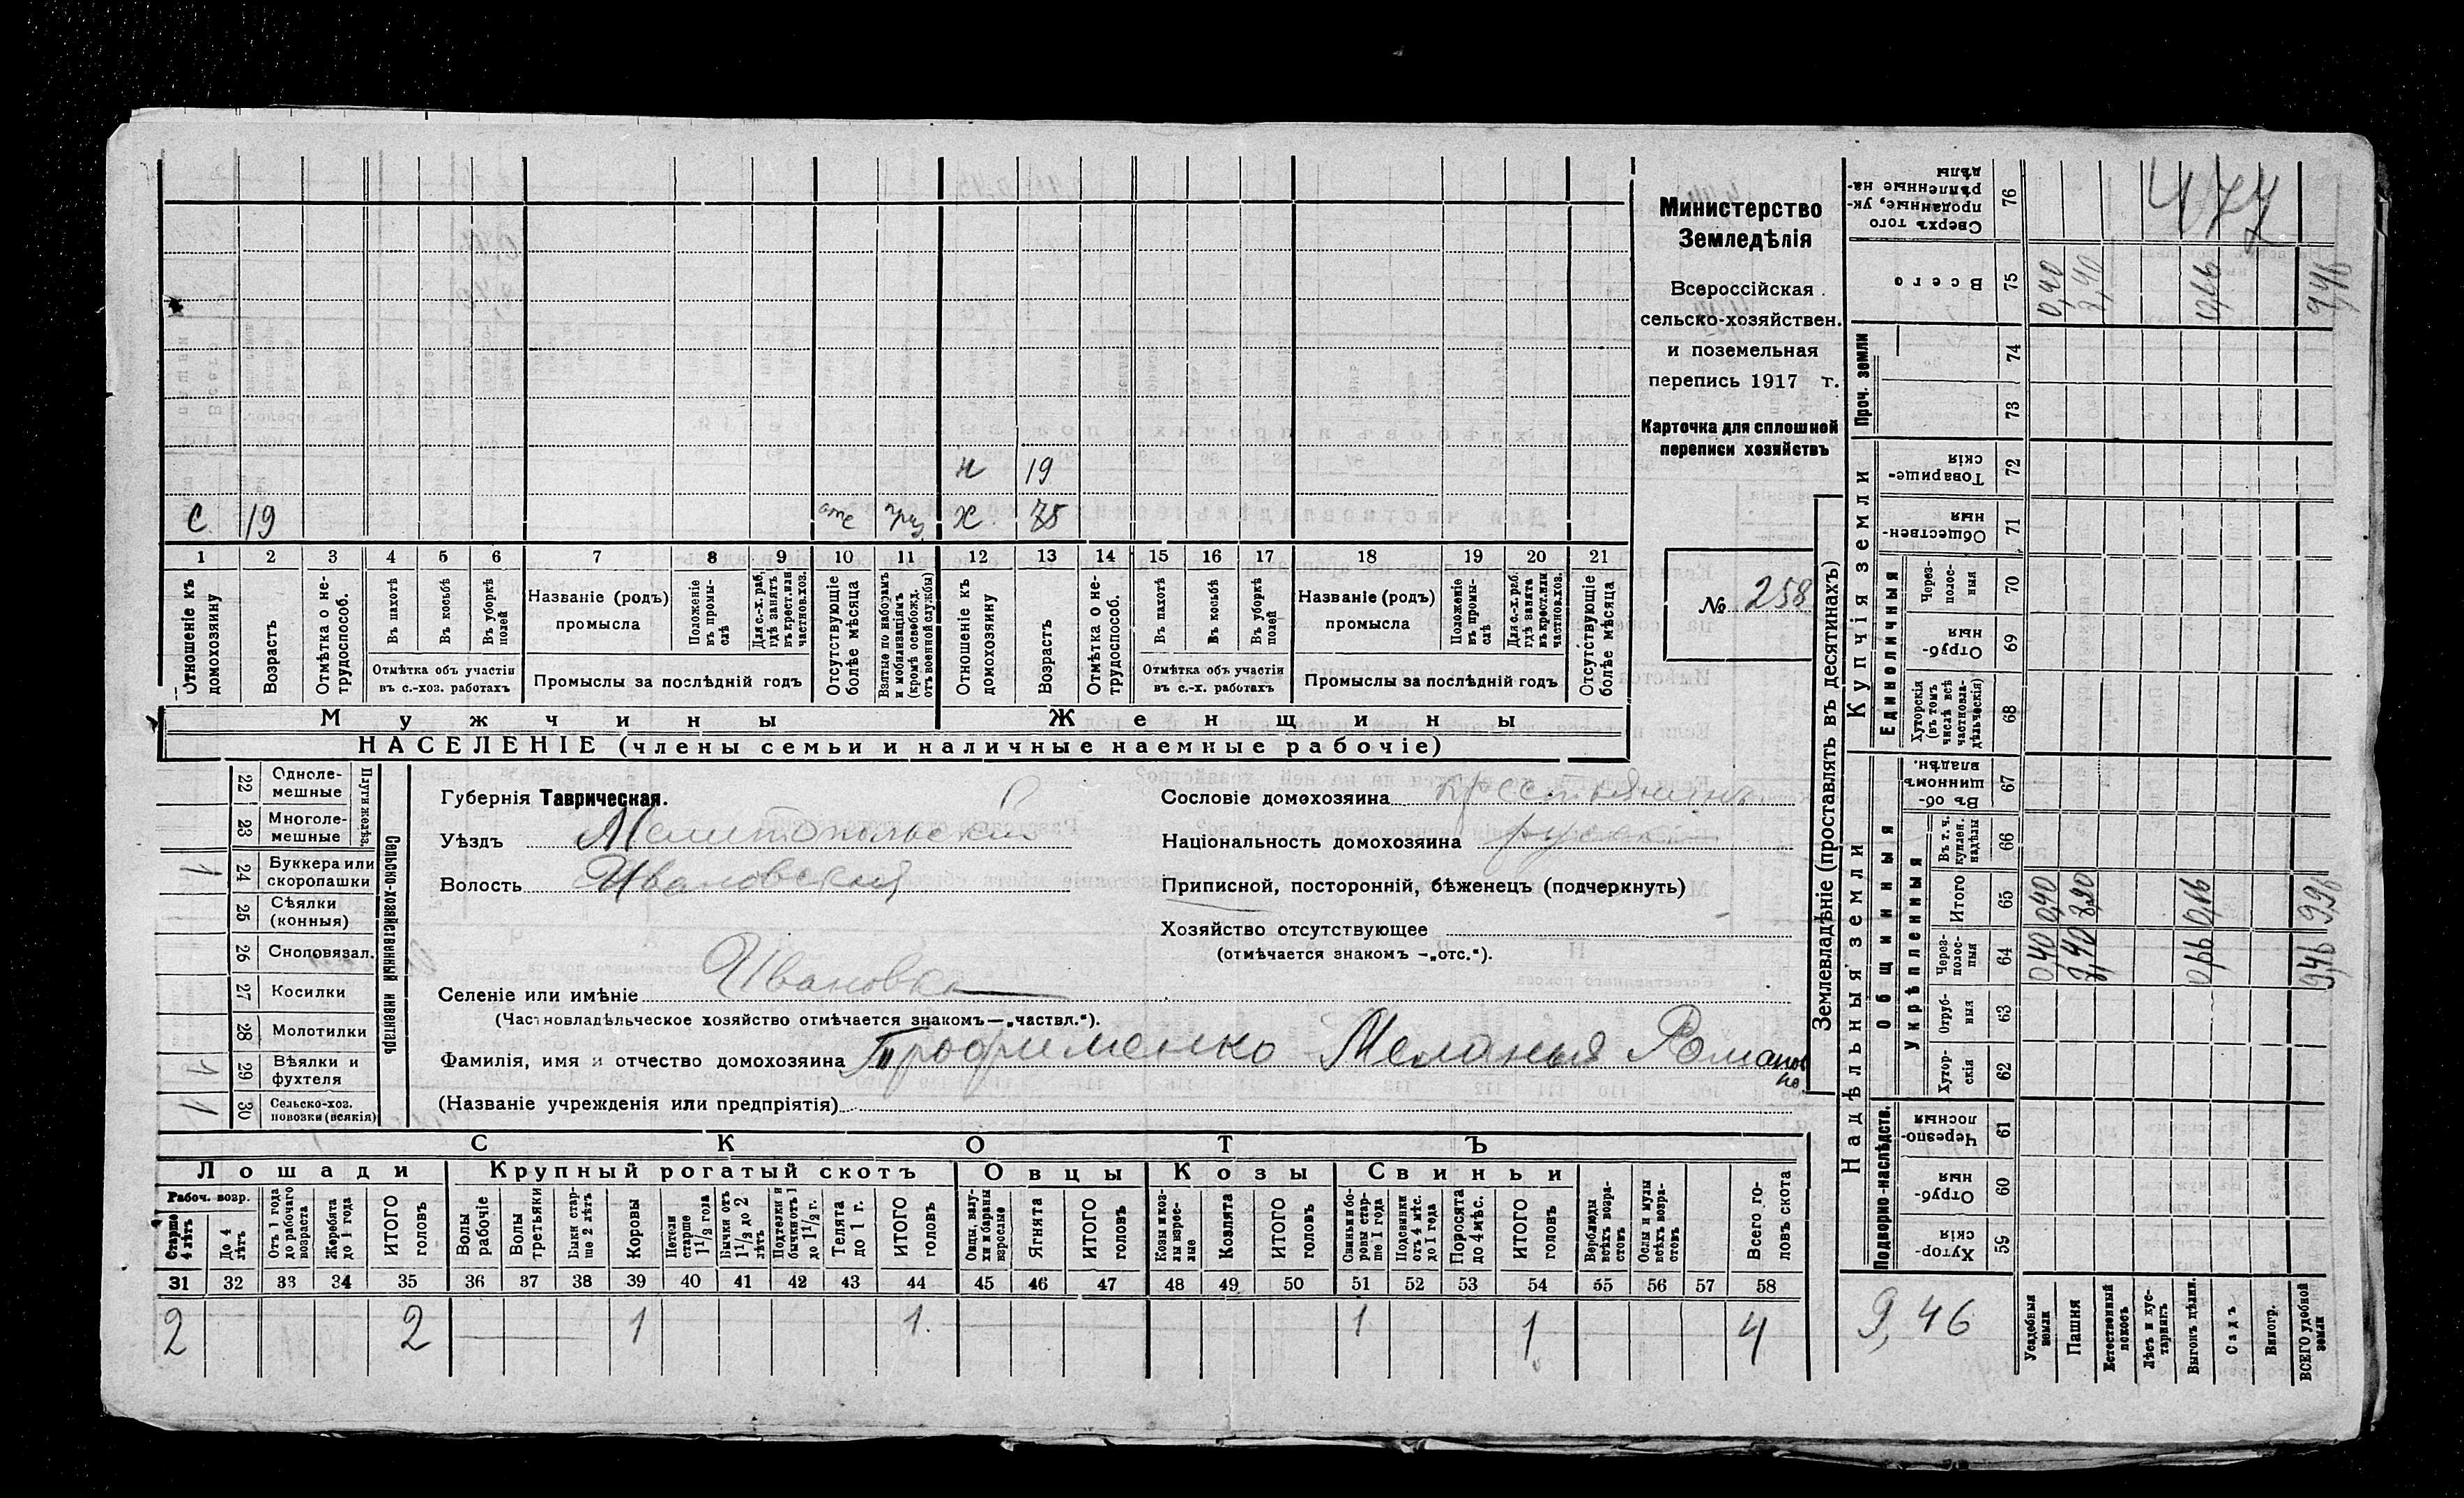 Министерство
Земледѣлія
Всероссійская
сельско-хозяйствен.
и поземельная
перепись 1917 г.
Карточка для сплошной
переписи хозяйствъ
№ 258
н 19
с. 19 отс приз ж. 75
1 2 3 4 5 6 7 8 9 10 11 12 13 14 15 16 17 18 19 20 21
Отношеніе къ домохозяину
Возрастъ
Отмѣтка о не-трудоспособ.
Въ пахотѣ
Въ косьбѣ
Въ уборкѣ полей
Отмѣтка объ участіи
въ с.-хоз. работахъ
Названіе (родъ)
промысла
Положеніе въ промы-слѣ
Для с.-х. раб. гдѣ занятъ въ крест. или частнов. хоз.
Промыслы за послѣдній годъ
Отсутствующіе болѣе мѣсяца
Взятые по наборамъ и мобилизаціямъ (кромѣ освобожд. отъ военной службы)
Отношеніе къ домохозяину
Возрастъ
Отмѣтка о не-трудоспособ.
Въ пахотѣ
Въ косьбѣ
Въ уборкѣ полей
Отмѣтка объ участіи
въ с.-х. работахъ
Названіе (родъ)
промысла
Положеніе въ промы-слѣ
Для с.-х. раб. гдѣ занята въ крест. или частнов. хоз.
Промыслы за послѣдній годъ
Отсутствующіе болѣе мѣсяца
Мужчины Женщины
НАСЕЛЕНІЕ (члены семьи и наличные наемные рабочіе)
Сельско-хозяйственный инвентарь
Плуги желѣз.
22 Однолемешные
23 Многолемешные
1 24 Буккера или скоропашки
25 Сѣялки (конныя)
26 Сноповязал.
27 Косилки
28 Молотилки
1 29 Вѣялки и фухтеля
1 30 Сельско-хоз. повозки (всякія)
Губернія Таврическая.
Уѣздъ Мелитопольскій
Волость Ивановская
Селеніе или имѣніе Ивановка
(Частновладѣльческое хозяйство отмѣчается знакомъ—„частвл.“).
Фамилія, имя и отчество домохозяина Трофименко Меланья Романовна
(Названіе учрежденія или предпріятія)
Сословіе домохозяина крестьянинъ
Національность домохозяина русск
Приписной, посторонній, бѣженецъ (подчеркнуть)
Хозяйство отсутствующее
(отмѣчается знакомъ -„отс.“).
СКОТЪ
Лошади Крупный рогатый скотъ Овцы Козы Свиньи
Рабоч. возр.
Старше 4 лѣтъ
До 4 лѣтъ
Отъ 1 года до рабочаго возраста
Жеребята до 1 года
ИТОГО головъ
Волы рабочіе
Волы третьяки
Быки старше 2 лѣтъ
Коровы
Нетели старше 1½ года
Бычки отъ 1½ до 2 лѣтъ
Подтелки и бычки отъ 1 до 1½ г.
Телята до 1 г.
ИТОГО головъ
Овцы, валухи и бараны взрослые
Ягнята
ИТОГО головъ
Козы и козлы взрослые
Козлята
ИТОГО головъ
Свиньи и боровы старше 1 года
Подсвинки отъ 4 мѣс. до 1 года
Поросята до 4 мѣс.
ИТОГО головъ
Верблюды всѣхъ возрастовъ
Ослы и мулы всѣхъ возрастовъ
Всего головъ скота
31 32 33 34 35 36 37 38 39 40 41 42 43 44 45 46 47 48 49 50 51 52 53 54 55 56 57 58
2 2 1 1. 1 1 4
Землевладѣніе (проставлять въ десятинахъ)
Надѣльныя земли
Купчія земли
Проч. земли
Подворно-наслѣдств.
Общинныя
Укрѣпленныя
Единоличныя
477
Сверхъ того проданные, укрѣпленные надѣлы 76
Всего 75 0,40 0,66 9,46
74
73
Товарищескія 72
Общественныя 71
Черезполосныя 70
Отрубныя 69
Хуторскія (въ томъ числѣ всѣ частновладѣльческія) 68
Въ общинномъ владѣн. 67
Въ т. ч. куплен. надѣлы 66
Итого 65 0,40
Черезполосныя 64 0,40 0,66 9,46
Отрубныя 63
Хуторскія 62
Черезполосныя 61
Отрубныя 60
Хуторскія 59
9,46
Усадебныя земли
Пашня
Естественный покосъ
Лѣсъ и кустарникъ
Выгонъ цѣлин.
Садъ
Виногр.
ВСЕГО удобной земли